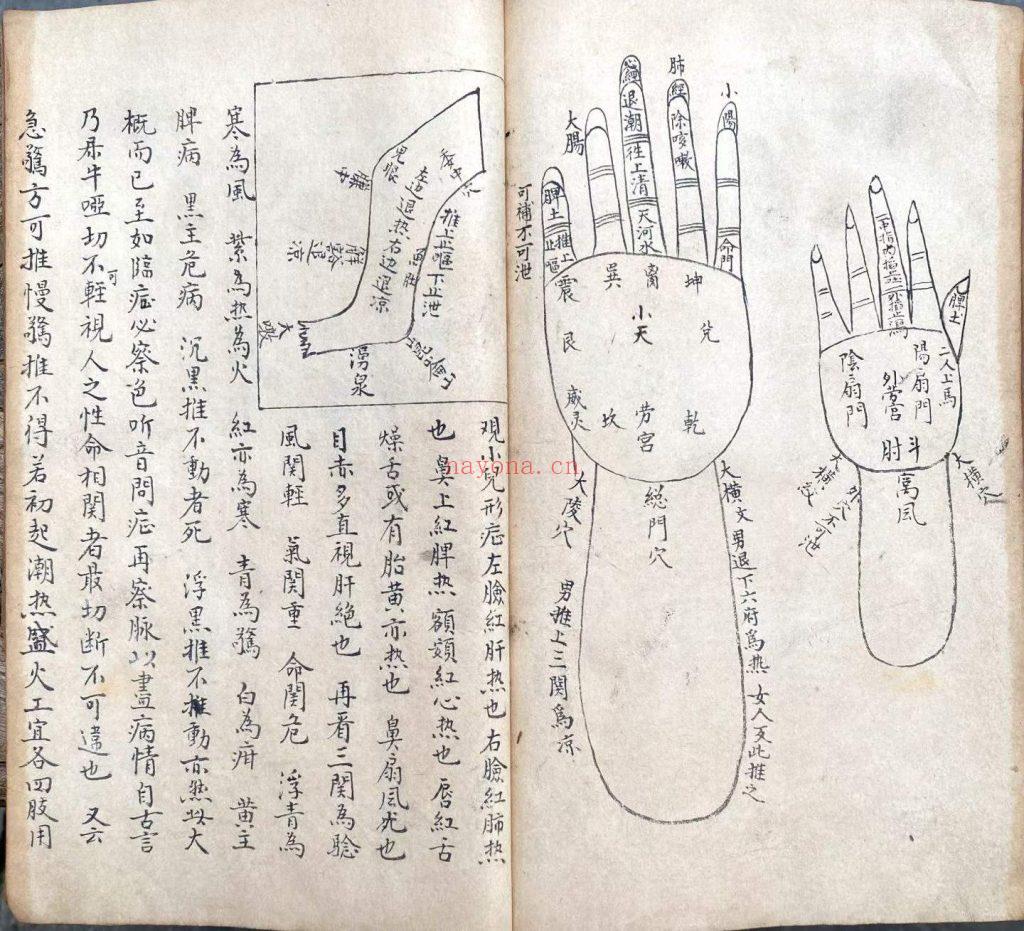 大腸
心經
退潮
徃上清
天河水
肺
經
除咳嗽
小
陽
命門
脾土
推上
止嘔
可補不可泄
震
巽
离
坤
艮
小天
兌
威灵
坎
劳宮
乾
大陵穴
総門穴
大橫文男退下六府為热 女人反此推之
男推上三関為凉
脾土
二人上馬
陽扇門
外劳宮
陰扇門
肘
斗
萬风
大橫穴
委中穴
推上止嘔下止泄
左边退热右边退凉
鬼恨
解谿
退凉
大敦
湧泉
覌小児形症左臉紅肝热也右臉紅肺热
也 鼻上紅脾热 額頦紅心热也 唇紅舌
燥舌或有胎黄亦热也 鼻扇风尤也
目赤多直視肝絶也 再看三関為驗
風関輕 氣関重 命関危 浮青為
寒為風 紫為热為火 紅亦為寒 青為驚 白為疳 黄主
脾病 黒主危病 沉黒推不動者死 浮黒推不推動亦然此大
概而已至如臨症必察色听音問症再察脉以盡病情自古言
乃昻牛啞切不可輕視人之性命相関者最切断不可違也 又云
急驚方可推慢驚推不得若初起潮热盛火工宜各四肢用
nayona.cn